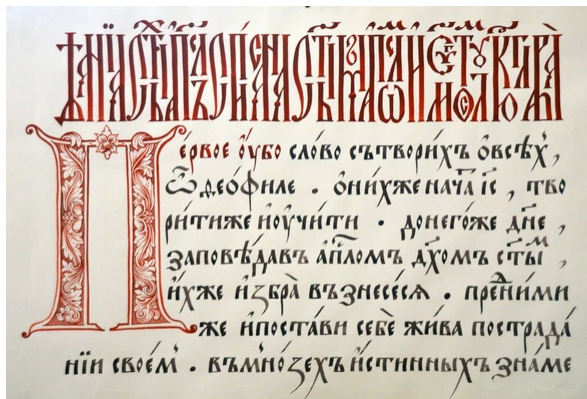 Пе́рвое оу҆́бо сло́во сътвори́хъ ѻ҆всѣ́х ,
ѽ деѻ́филе . ѻ҆ни́хже нача́т іс҃ , тво
ри́тиже и҆оу҆чи́ти · донего́же дн҃е ,
заповѣ́давъ а҆п҃ломъ дх҃омъ ст҃ы́м ,
и҆́хже и҆збра̀ възнесе́сѧ . пред̾ни́ми
же и҆поста́ви себѐ жи́ва пострада́
нїи свое́м . въмно́зехъ и҆́стинныхъ зна́ме